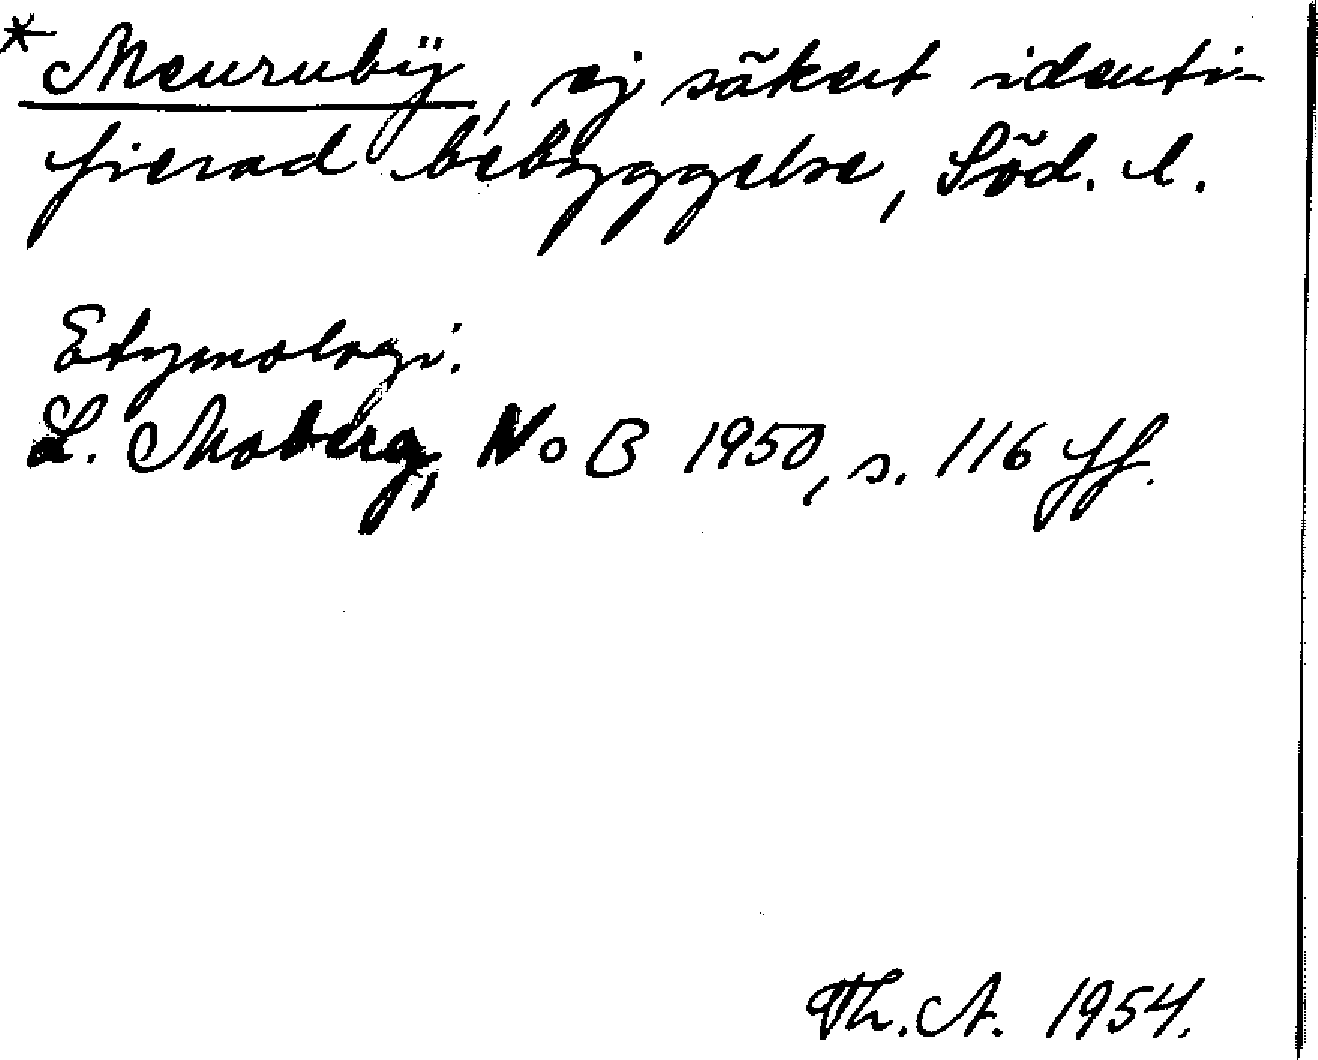 * Meurubÿ, ej säkert identi-
fierad bebyggelse, Söd. l.
Etymologi.
L. Moberg, NoB 1950, s. 116 ff.
Th. A. 1954.